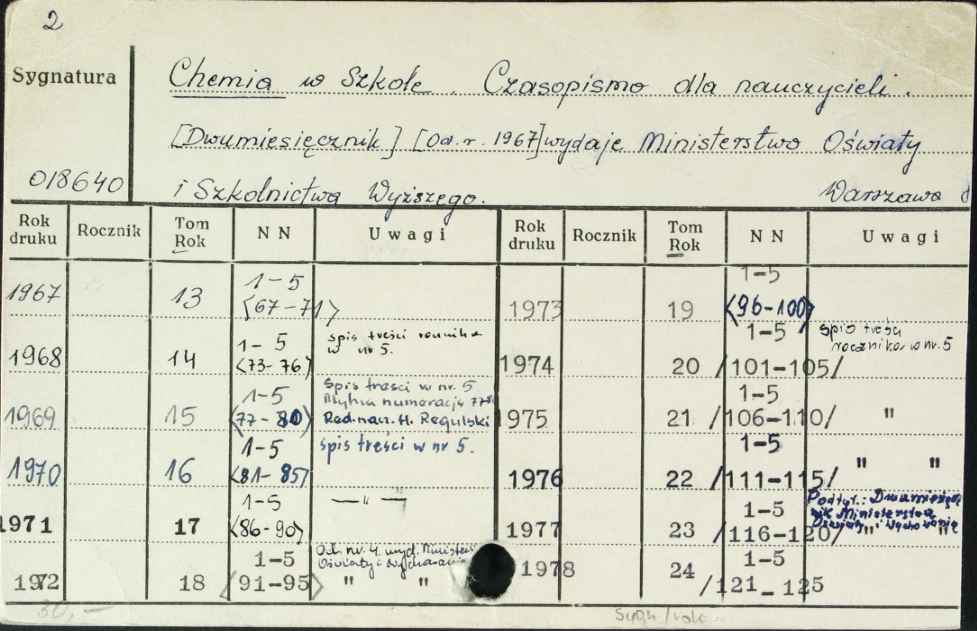 2
Sygnatura
Chemia w Szkole. Czasopismo dla nauczycieli.
[Dwumiesięcznik] [Od. r. 1967] wydaje Ministerstwo Oświaty
018640
i Szkolnictwa Wyższego. Warszawa
Rok druku Rocznik Tom Rok NN Uwagi Rok druku Rocznik Tom Rok NN Uwagi
1967 13 1-5 <67-71>
1968 14 1-5 <73-76> spis treści rocznika w nr 5.
1969 15 1-5 <77-80> Spis treści w nr. 5 numeracja Red. nacz. H. Regulski
1970 16 1-5 <81-85> spis treści w nr 5.
1971 17 1-5 <86-90> — " — "
1972 18 1-5 <91-95> Od. nr. 4. wyd. Minister. Oświaty i Wychowania " "
1973 19 1-5 <96-100>
1974 20 1-5 /101-105/ Spis treści rocznika w nr. 5
1975 21 1-5 /106-110/ "
1976 22 1-5 /111-115/ " "
1977 23 1-5 /116-120/ Podtyt.: Dwumiesięcznik Ministerstwa Oświaty i Wychowania " "
1978 24 1-5 /121_125
80,—